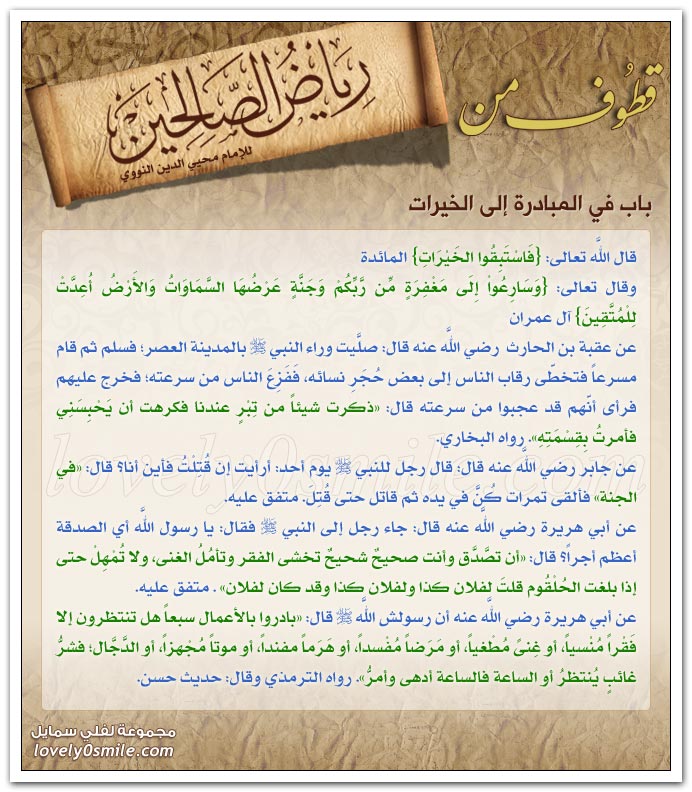 قطوف من
رِيَاضُ الصَّالِحِيْنَ
للإمام محيي الدين النووي
باب في المبادرة إلى الخيرات
قال اللَّه تعالى: {فَاسْتَبِقُوا الخَيْرَاتِ} المائدة
وقال تعالى: {وَسَارِعُواْ إِلَى مَغْفِرَةٍ مِّن رَّبِّكُمْ وَجَنَّةٍ عَرْضُهَا السَّمَاوَاتُ وَالأَرْضُ أُعِدَّتْ
لِلْمُتَّقِينَ} آل عمران
عن عقبة بن الحارث رضي اللَّه عنه قال: صلَّيت وراء النبي ﷺ بالمدينة العصر؛ فسلم ثم قام
مسرعاً فتخطَّى رقاب الناس إلى بعض حُجَرِ نسائه، فَفَزِعَ الناس من سرعته؛ فخرج عليهم
فرأى أنّهم قد عجبوا من سرعته قال: «ذكرت شيئاً من تِبْرٍ عندنا فكرهت أن يَحْبِسَنِي
فأمرتُ بِقِسْمَتِهِ». رواه البخاري.
عن جابر رضي اللَّه عنه قال: قال رجل للنبي ﷺ يوم أحد: أرأيت إن قُتِلْتُ فأين أنا؟ قال: «في
الجنة» فألقى تمرات كُنَّ في يده ثم قاتل حتى قُتِلَ. متفق عليه.
عن أبي هريرة رضي اللَّه عنه قال: جاء رجل إلى النبي ﷺ فقال: يا رسول اللَّه أي الصدقة
أعظم أجراً؟ قال: «أن تصَّدَّق وأنت صحيحٌ شحيحٌ تخشى الفقر وتأمُلُ الغنى، ولا تُمْهِلْ حتى
إذا بلغت الحُلْقُوم قلتَ لفلان كذا ولفلان كذا وقد كان لفلان» . متفق عليه.
عن أبي هريرة رضي اللَّه عنه أن رسولش اللَّه ﷺ قال: «بادروا بالأعمال سبعاً هل تنتظرون إلا
فَقْراً مُنْسياً، أو غِنىً مُطْغياً، أو مَرَضاً مُفْسداً، أو هَرَماً مفنداً، أو موتاً مُجْهِزاً، أو الدَّجَّال؛ فشرُّ
غائبٍ يُنتظرُ أو الساعة فالساعة أدهى وأمرُّ». رواه الترمذي وقال: حديث حسن.
lovely0smile.com
مجموعة لفلي سمايل
lovely0smile.com